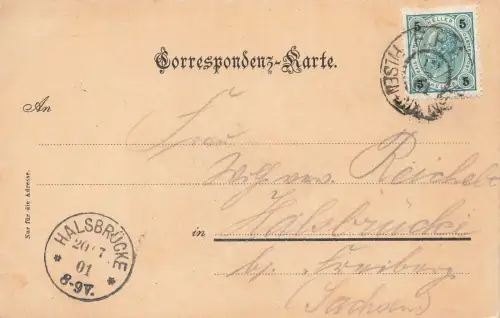 Correspondenz-Karte.
5 HELLER 5
5 5
PILSEN
An
Frau
Wilh. verw. Reichelt
Halsbrücke
in
bg. Freiberg
Sachsen
Nur für die Adresse.
HALSBRÜCKE
20 7
01
8-9V.